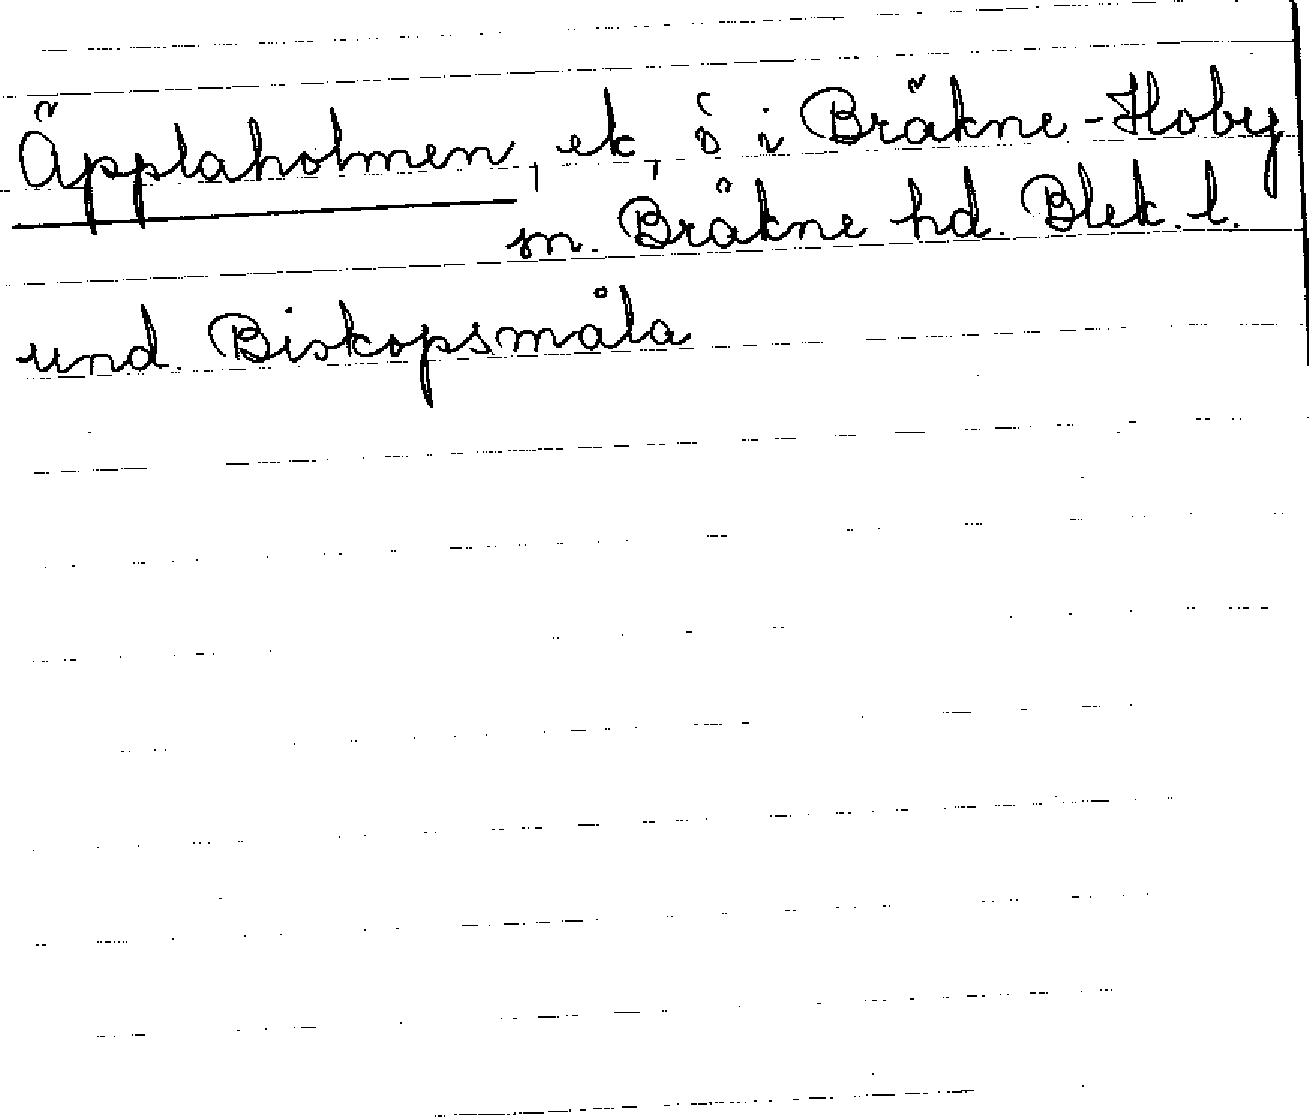 Äpplaholmen, ek, ö i Bräkne-Hoby
sn. Bräkne hd. Blek. l.
und. Biskopsmåla